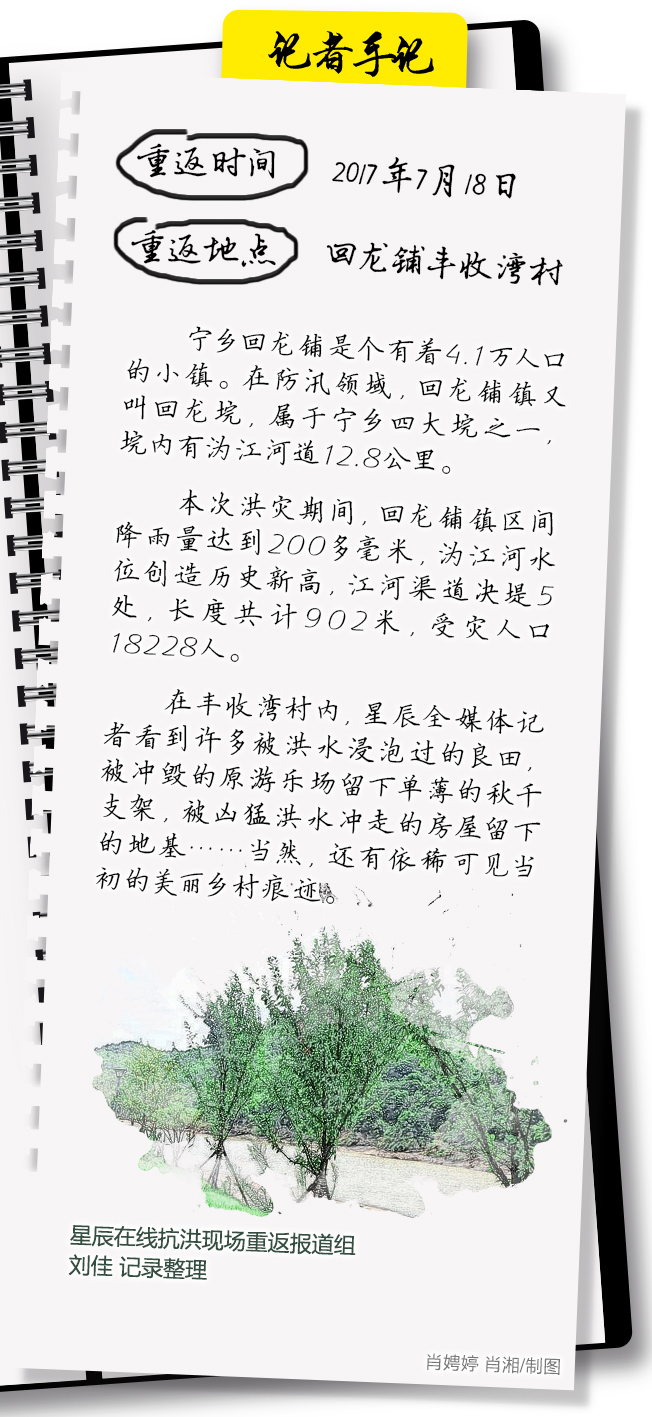 记者手记
重返时间 2017年7月18日
重返地点 回龙铺丰收湾村
宁乡回龙铺是个有着4.1万人口
的小镇。在防汛领域，回龙铺镇又
叫回龙垸，属于宁乡四大垸之一，
垸内有沩江河道12.8公里。
本次洪灾期间，回龙铺镇区间
降雨量达到200多毫米，沩江河水
位创造历史新高，江河渠道决堤5
处，长度共计902米，受灾人口
18228人。
在丰收湾村内，星辰全媒体记
者看到许多被洪水浸泡过的良田，
被冲毁的原游乐场留下单薄的秋千
支架，被凶猛洪水冲走的房屋留下
的地基……当然，还有依稀可见当
初的美丽乡村痕迹。
星辰在线抗洪现场重返报道组
刘佳 记录整理
肖娉婷 肖湘/制图